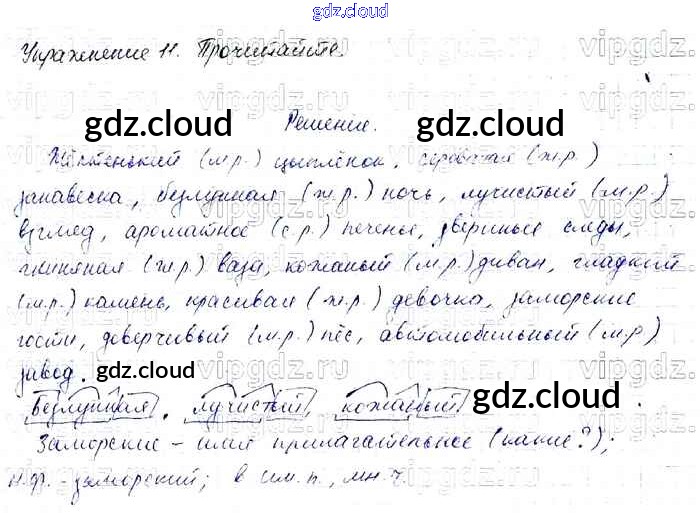 gdz.cloud
Упражнение 11. Прочитайте.
vipgdz.
gdz.cloud Решение. gdz.cloud
Жёлтенький (м.р.) цыплёнок, сероватая (ж.р.)
занавеска, безлунная (ж.р.) ночь, лучистый (м.р.)
взгляд, ароматное (с.р.) печенье, звериные следы,
глиняная (ж.р.) ваза, кожаный (м.р.) диван, гладкий
(м.р.) камень, красивая (ж.р.) девочка, заморские
гости, доверчивый (м.р.) пёс, автомобильный (м.р.)
завод. gdz.cloud gdz.cloud
Безлунная, лучистый, кожаный. gdz.cloud
Заморские – имя прилагательное (какие?);
н.ф. - заморский; в им.п., мн.ч.